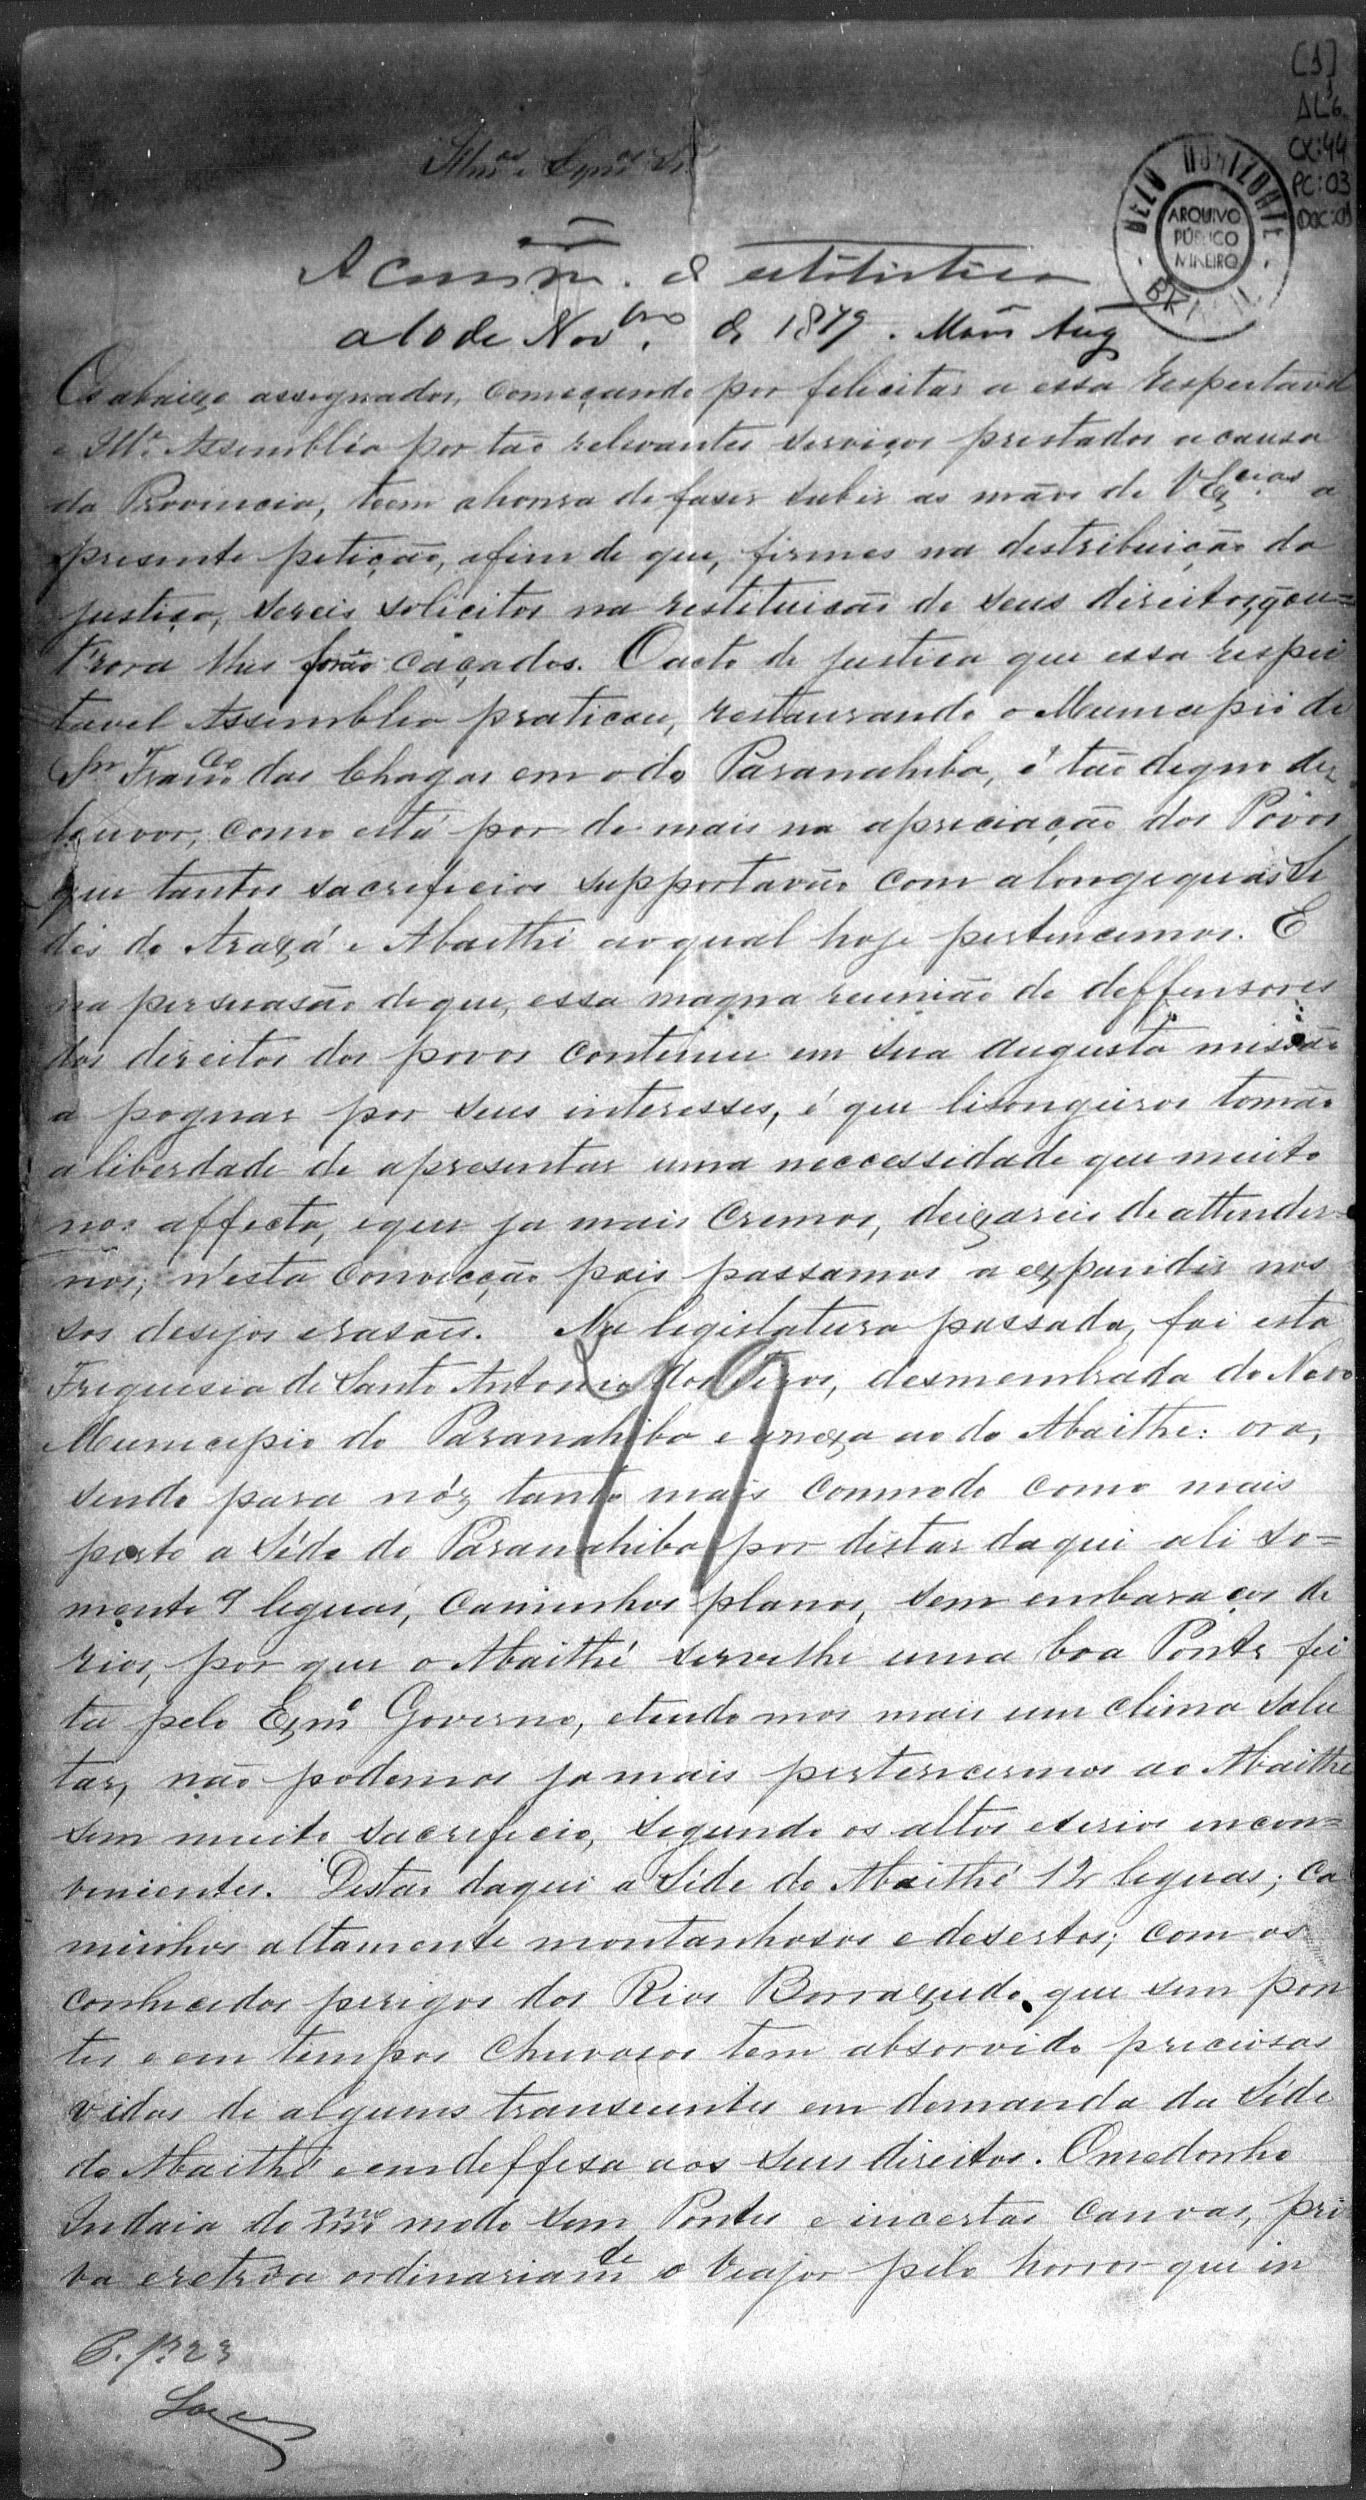 [1]
AL6
CX:44
PC:03
DOC:01
BELO HORIZONTE
ARQUIVO
PÚBLICO
MINEIRO
Illmos. e Exmos. Srs.
A Commm. de estatistica
a 10 de Novbro. de 1879.
Os abaixo assignados, começando por felicitar a essa respeitavel
e Illa. Assembléa por tão relevantes serviços prestados a causa
da Provincia, teem ahonra de faser subir as mãos de VExcias a
presente petição, afim de que, firmes na destribuição da
justiça, sereis solicitos na restituisão de seus direitos, q̃ ou=
t'rora lhes forão caçados. Oacto de justica que essa respei
tavel Assemblea praticou, restaurando o Municipio de
Sto Franco das Chagas em o do Paranahiba, é tão digno de
louvor, como está por de mais na apreciação dos Povos
que tantos sacreficios supportavão com alongequas Se
des do Araxá e Abaethé ao qual hoje pertencemos. E
na persuasão deque, essa magna reunião de deffensores
dos direitos dos povos continue em sua augusta missão
a pognar por seus interesses, é que lisongeiros tomão
a liberdade de apresentar uma neccessidade que muito
nos affecta, eque ja mais cremos, deixareis de attender=
nos; n'esta convicção pois passamos a expandir nos
sos desejos erasões. Na legislatura passada, foi esta
Freguesia de Santo Antonio dos Tiros, desmembrada do Novo
Municipio do Paranahiba e anexa ao do Abaithé: ora,
sendo para nóz tanto mais commodo como mais
perto a Séde do Paranahiba por distar daqui ali so=
mente 9 leguas, caminhos planos, sem embaraços de
rios, por que o Abaithé servelhe uma boa Ponte fei
ta pelo Exmo Governo, etendo mos mais um clima salu
tar, não podemos jamais pertencermos ao Abaithé
sem muito sacreficio, segundo os altos eserios incon=
venientes. Distar daqui a Séde do Abaithé 12 leguas; ca
minhos altamente montanhosos edesertos; com os
conhecidos perigos dos Rios Borraxudo que sem pon
tes e em tempos chuvosos tem absorvido preciosas
vidas de alguns transeuntes em demanda da Séde
do Abaithé e em deffesa aos seus direitos. Omedonho
Indaia do mmo modo sem Pontes e incertas canoas, pri
va eretroa ordinariamte o viajor pelo horror que in
C. p. 23